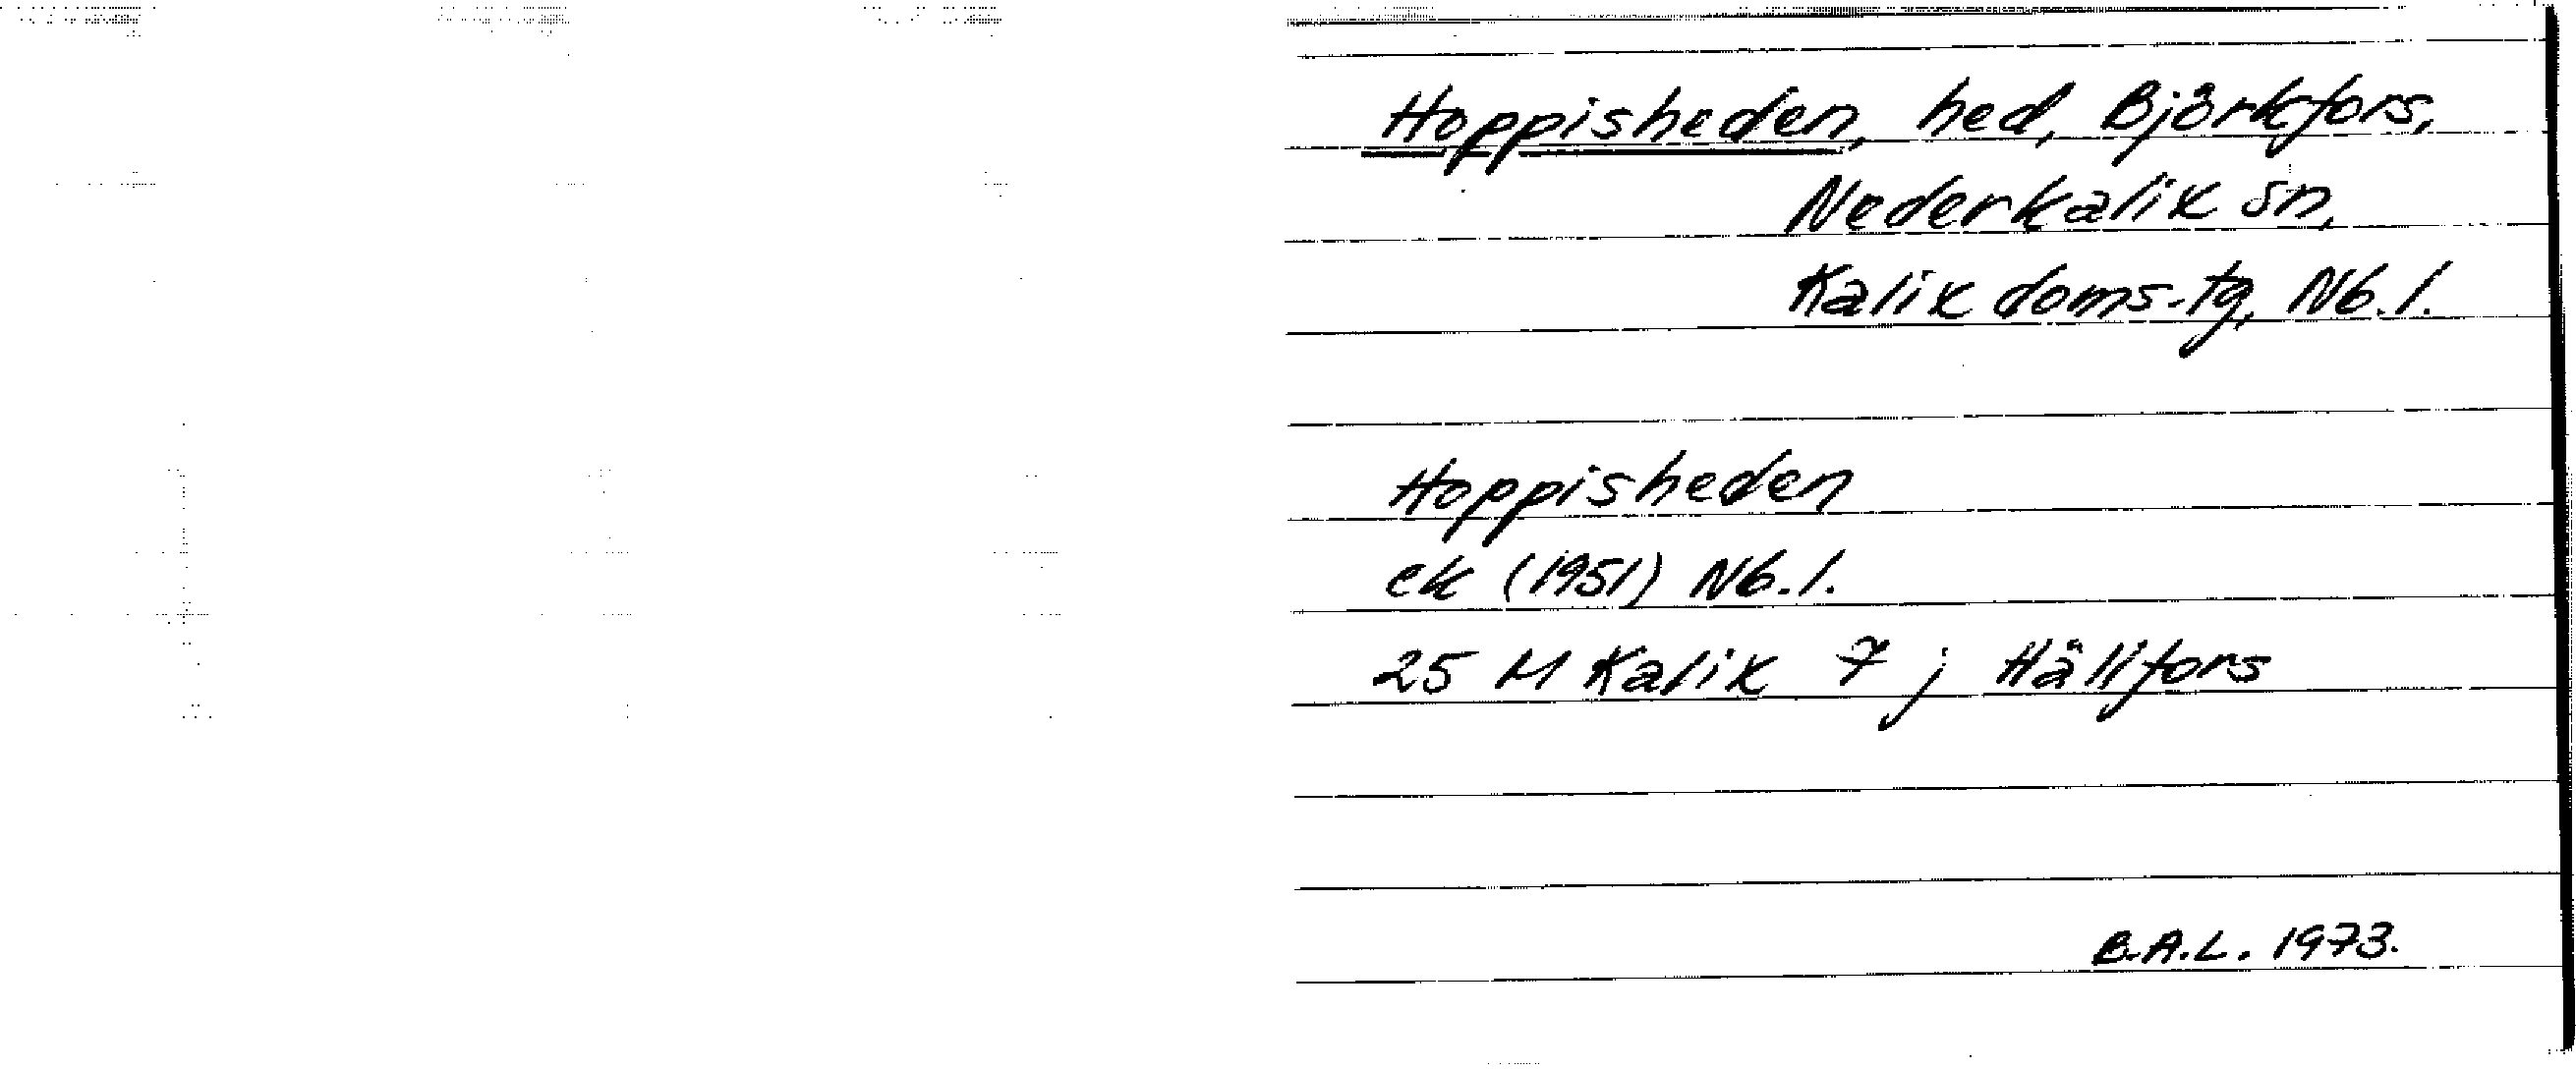 Hoppisheden, hed, Björkfors,
Nederkalix sn,
Kalix doms-tg, Nb.l.
Hoppisheden
ek (1951) Nb.l.
25 M Kalix 7 j Hällfors
B.A.L. 1973.